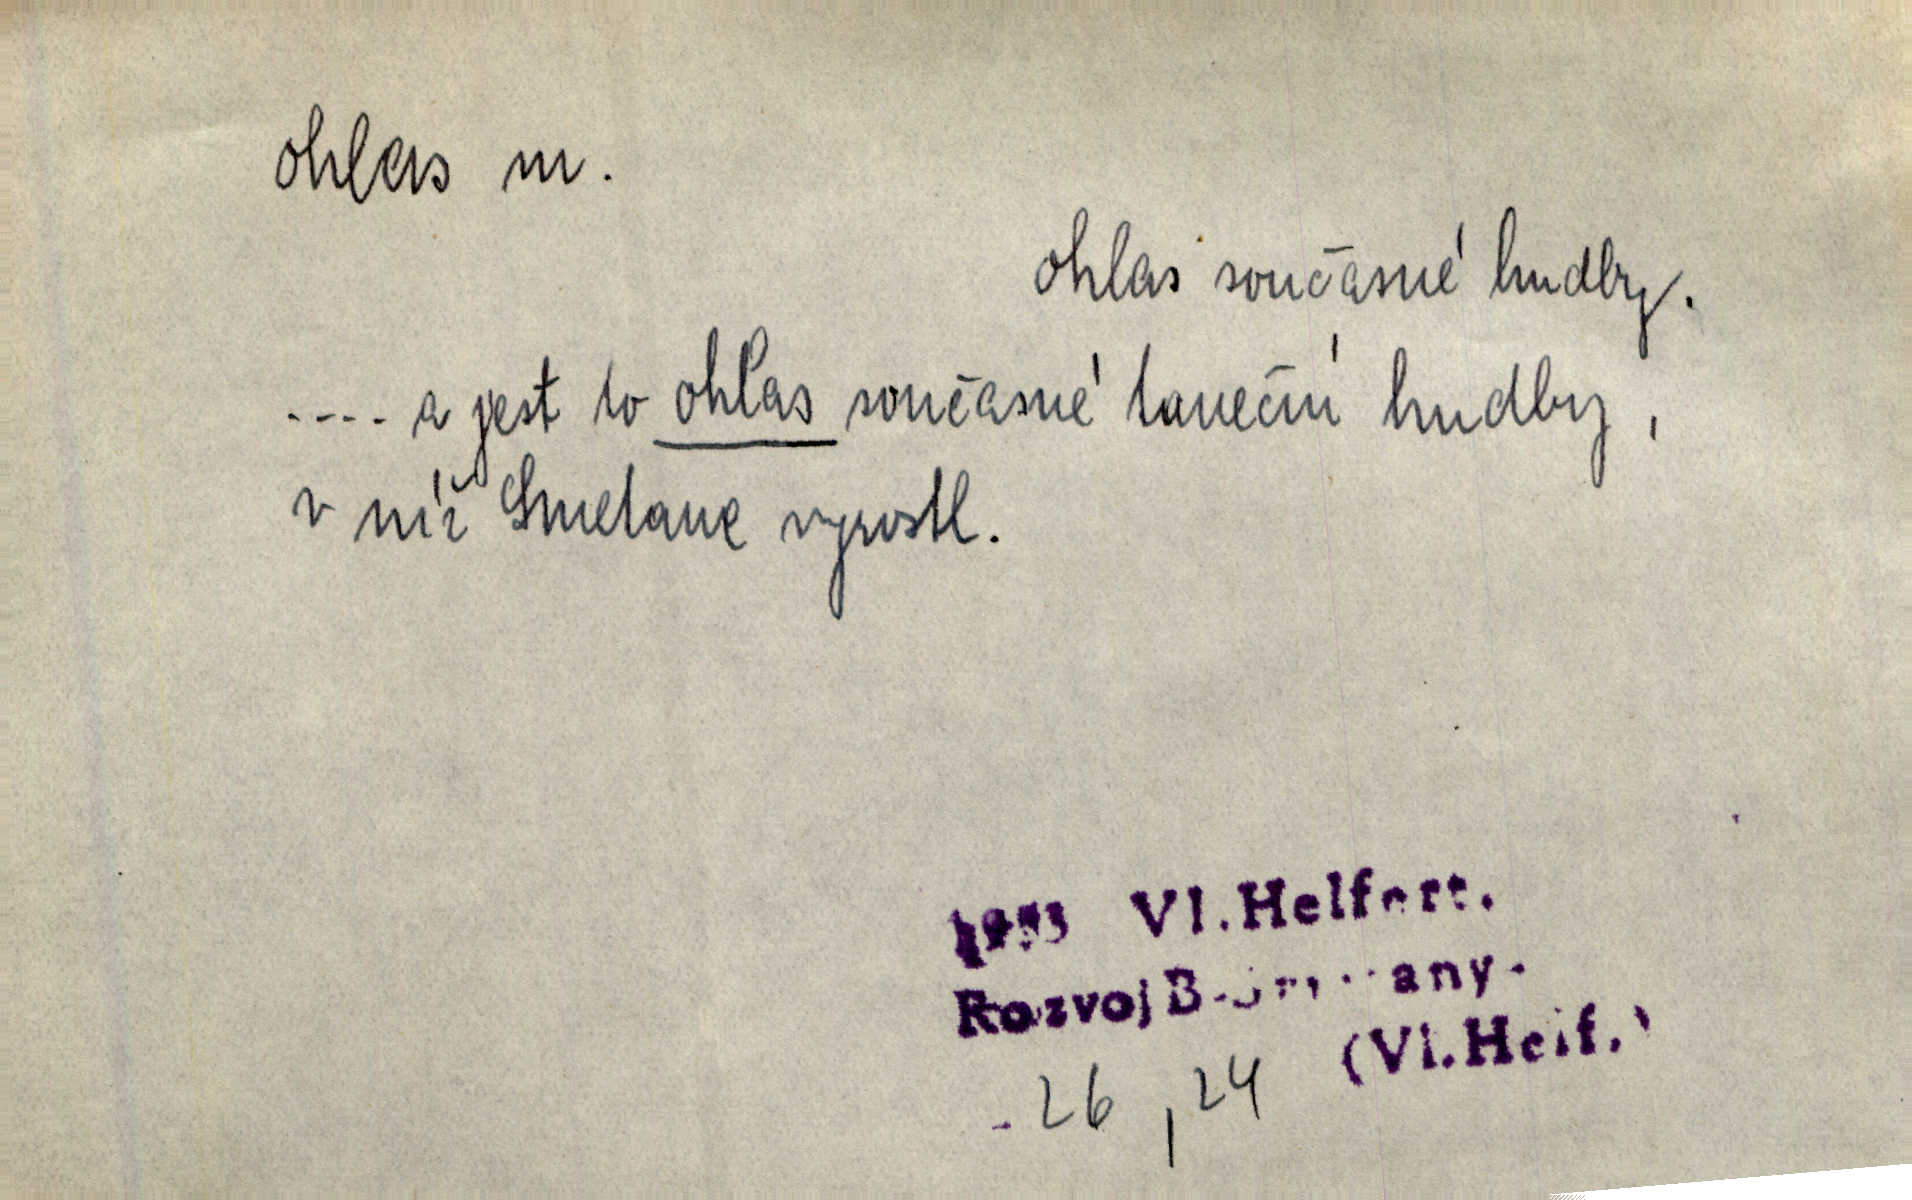 ohlas m.
ohlas současné hudby.
.... a jest to ohlas současné taneční hudby,
v níž Smetana vyrostl.
Vl. Helfert.
Rozvoj
(Vl. Helf.)
26,24